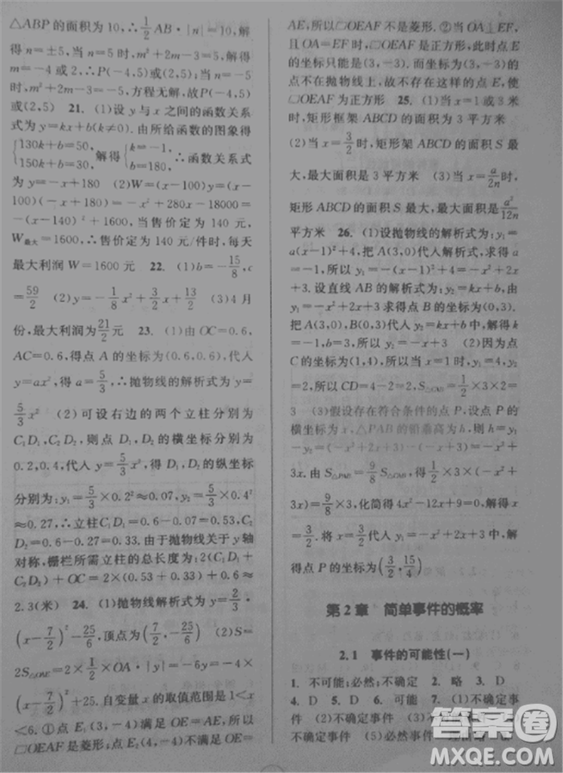 △ABP的面积为10,∴\frac{1}{2}AB·|n|=10,解得
n=±5,当n=5时,m²+2m-3=5,解得
m=-4或2,∴P(-4,5)或(2,5);当n=-5
时,m²+2m-3=-5,方程无解,故P(-4,5)
或(2,5) 21. (1)设y与x之间的函数关系
式为y=kx+b(k≠0).由所给函数的图象得
{130k+b=50, 150k+b=30, 解得{k=-1, b=180. ∴函数关系式
为y=-x+180 (2)W=(x-100)y=(x-
100)(-x+180)=-x²+280x-18000=
-(x-140)²+1600,当售价定为140元,
W最大=1600.∴售价定为140元/件时,每天
最大利润W=1600元 22. (1)b=-\frac{15}{8},c=
\frac{59}{2} (2)y=-\frac{1}{8}x²+\frac{3}{2}x+\frac{13}{2} (3)4月
份,最大利润为\frac{21}{2}元 23. (1)由OC=0.6,
AC=0.6,得点A的坐标为(0.6,0.6),代入
y=ax²,得a=\frac{5}{3},∴抛物线的解析式为y=
\frac{5}{3}x² (2)可设右边的两个立柱分别为
C₁D₁,C₂D₂,则点D₁,D₂的横坐标分别为
0.2,0.4,代入y=\frac{5}{3}x²,得D₁,D₂的纵坐标
分别为:y₁=\frac{5}{3}×0.2²≈0.07,y₂=\frac{5}{3}×0.4²
≈0.27,∴立柱C₁D₁=0.6-0.07=0.53,
C₂D₂=0.6-0.27=0.33.由于抛物线关于y轴
对称,栅栏所需立柱的总长度为:2(C₁D₁+
C₂D₂)+OC=2×(0.53+0.33)+0.6≈
2.3(米) 24. (1)抛物线解析式为y=
\frac{2}{3}(x-\frac{7}{2})²-\frac{25}{6},顶点为(\frac{7}{2},-\frac{25}{6}) (2)S=
2S△OAE=2×\frac{1}{2}×OA·|y|=-6y=-4
(x-\frac{7}{2})²+25.自变量x的取值范围是1<x
<6.当点E₁(3,-4)满足OE=AE,所以
□OEAF是菱形,点E₂(4,-4)不满足OE=AE,
所以□OEAF不是菱形.②当OA⊥EF,
且OA=EF时,□OEAF是正方形,此时点E
的坐标只能是(3,-3).而坐标为(3,-3)的
点不在抛物线上,故不存在这样的点E,使
□OEAF为正方形 25. (1)当x=1或3米
时,矩形框架ABCD的面积为3平方米
(2)当x=\frac{3}{2}时,矩形架ABCD的面积S最
大,最大面积是3平方米 (3)当x=\frac{a}{2n}时,
矩形ABCD的面积S最大,最大面积为\frac{a²}{12n}
平方米 26. (1)设抛物线的解析式为:y₁=
a(x-1)²+4,把A(3,0)代入解析式求得a=
-1,∴y₁=-(x-1)²+4=-x²+2x+3.
设直线AB的解析式为:y₂=kx+b,
由y₁=-x²+2x+3求得点B的坐标为(0,3).
把A(3,0),B(0,3)代入y₂=kx+b中,解得
k=-1,b=3,∴y₂=-x+3 (2)因为点
C的坐标为(1,4),所以当x=1时,y₁=4,y₂
=2.所以CD=4-2=2,S△CAB=\frac{1}{2}×3×2=3
(3)假设存在符合条件的点P,设P点的横坐
标为x,△PAB的铅垂高为h,则h=y₁-
y₂=(-x²+2x+3)-(-x+3)=-x²+
3x.由S△PAB=\frac{9}{8}S△CAB,得\frac{1}{2}×3×(-x²+
3x)=\frac{9}{8}×3,化简得4x²-12x+9=0,解得x
=\frac{3}{2}.将x=\frac{3}{2}代入y₁=-x²+2x+3中,解
得点P的坐标为(\frac{3}{2},\frac{15}{4})
第2章 简单事件的概率
2.1 事件的可能性(一)
1. 不可能;必然;不确定 2. 略 3. D
4. D 5. D 6. 可能 7. (1)不确定事
件 (2)不确定事件 (3)不确定事件
(4)不确定事件 (5)必然事件
答案圈
MXQE.COM